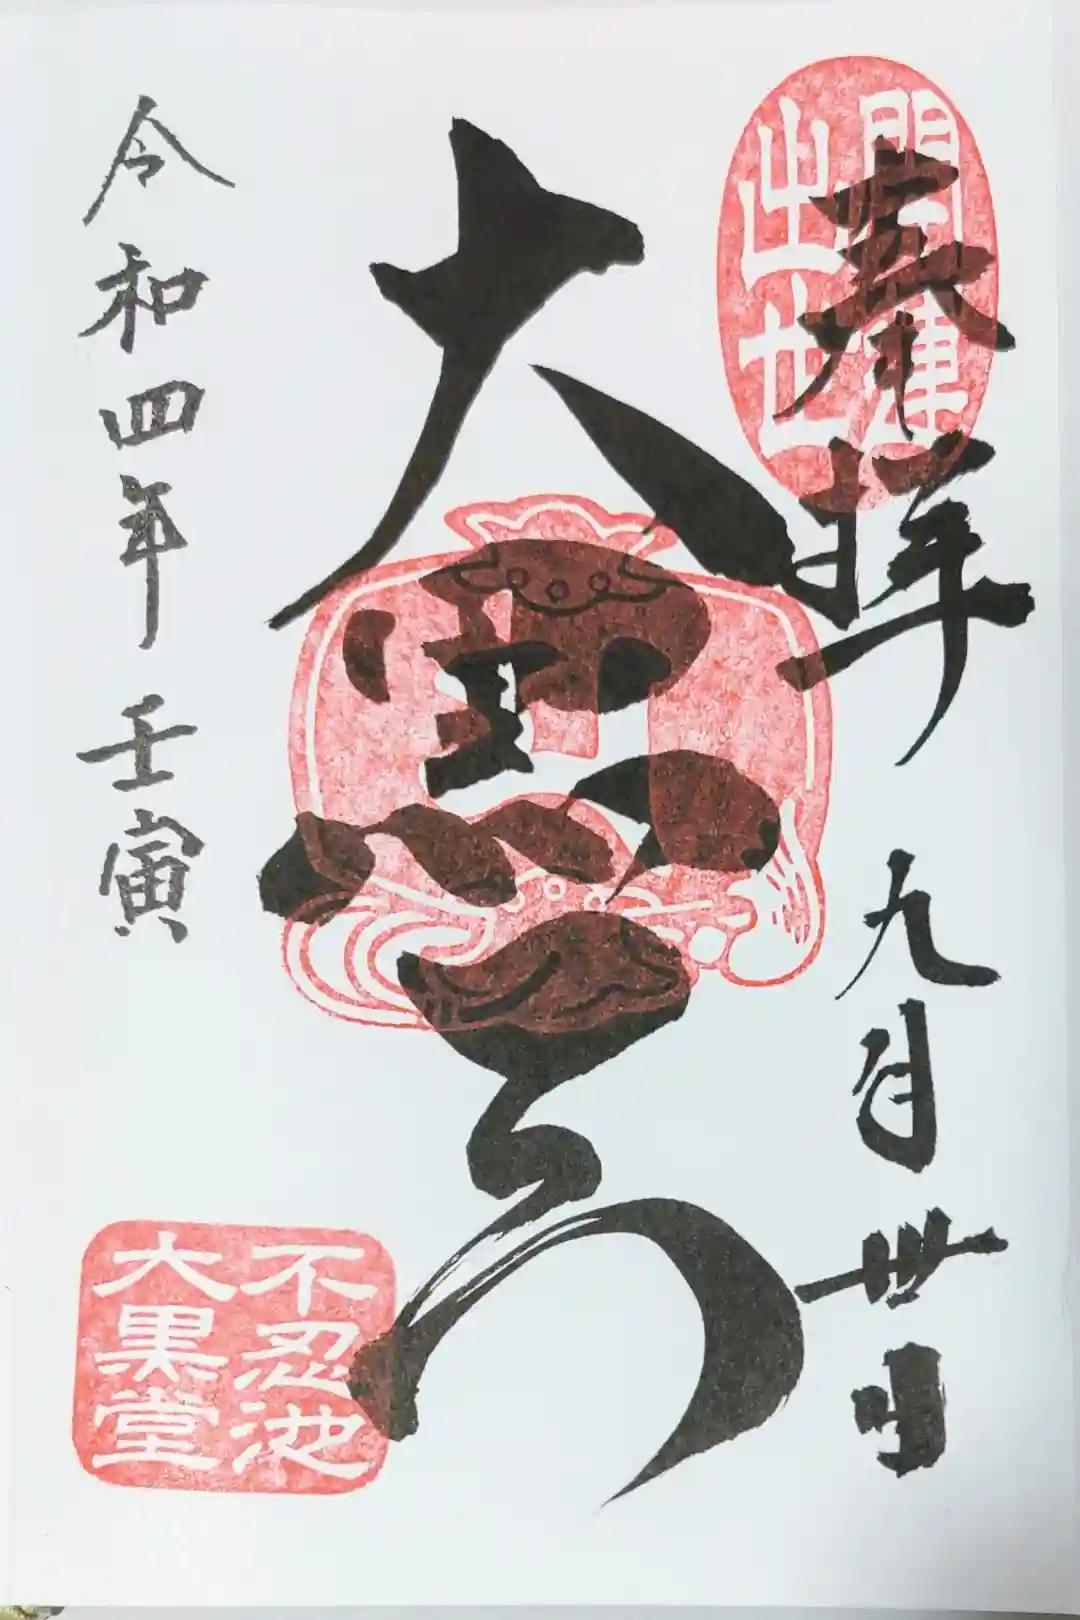 開運
出世
奉拝 九月卅日
大黒天
令和四年 壬寅
不忍池
大黒堂